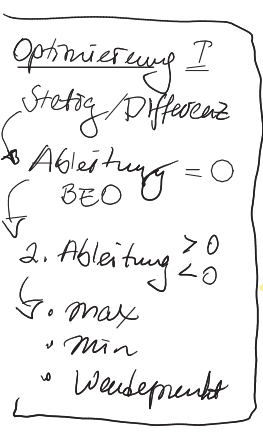 Optimierung I
Stetig/Differenz
Ableitung = 0
BEO
2. Ableitung > 0
< 0
• max
• min
• Wendepunkt